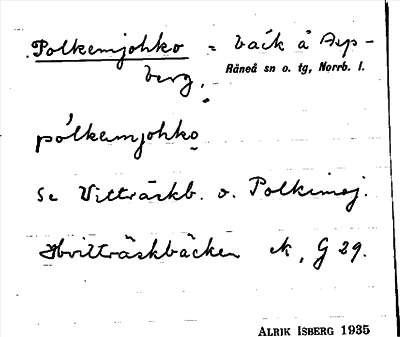 Polkemjohko = bäck å Asp-
berg.
Råneå sn o. tg, Norrb. l.
pólkemjohko̬
Se Vitträskb. o. Polkimoj.
Hvitträskbäcken K, G 29.
ALRIK ISBERG 1935